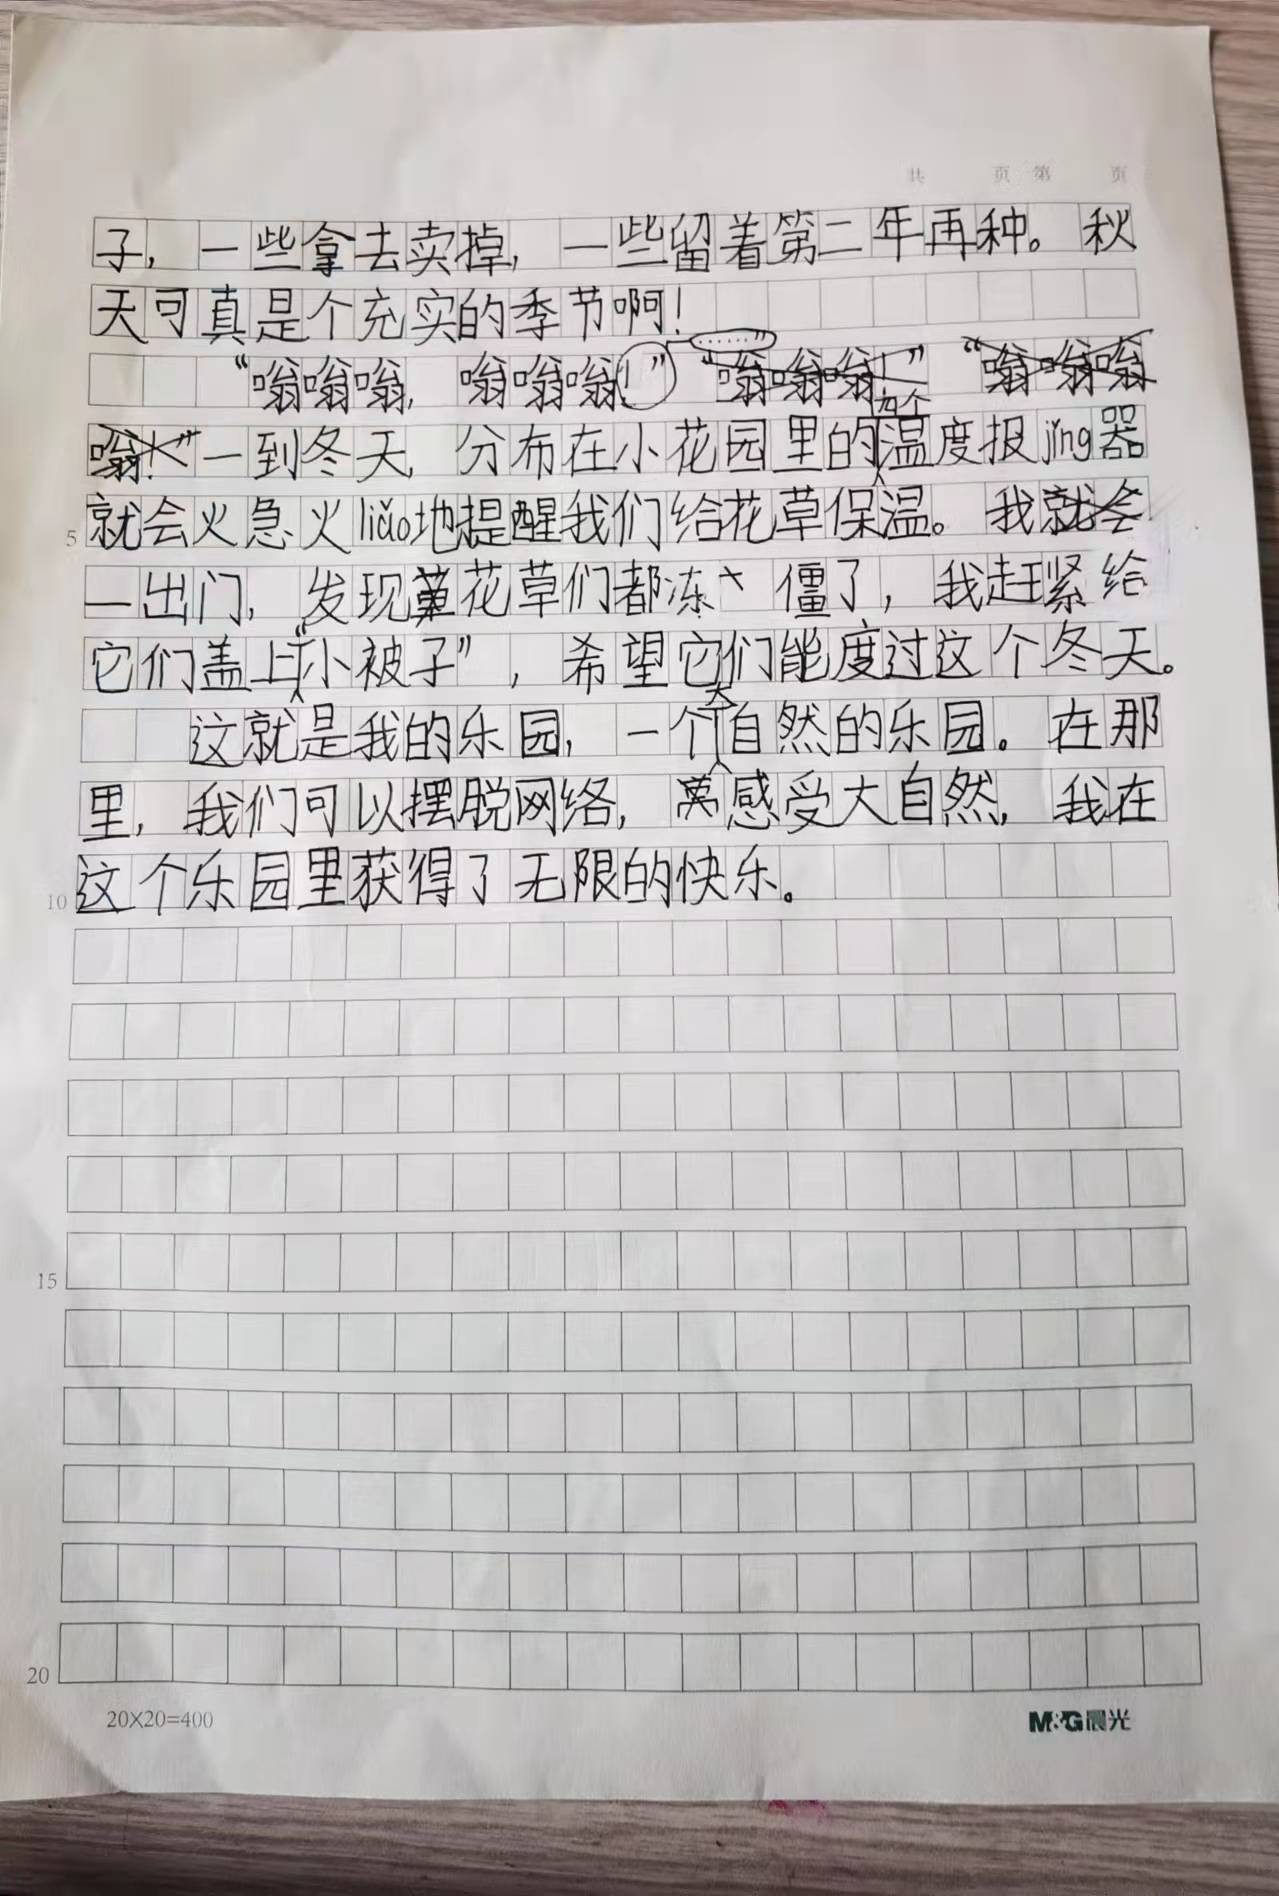 共 页 第 页
子，一些拿去卖掉，一些留着第二年再种。秋
天可真是个充实的季节啊！
“嗡嗡嗡，嗡嗡嗡！” ……” “嗡嗡嗡！” “嗡嗡嗡
嗡！”一到冬天，分布在小花园里的四个温度报jǐng器
5 就会火急火liǎo地提醒我们给花草保温。我就会
一出门，发现花草们都冻僵了，我赶紧给
它们盖上“小被子”，希望它们能度过这个冬天。
这就是我的乐园，一个大自然的乐园。在那
里，我们可以摆脱网络，感受大自然，我在
10 这个乐园里获得了无限的快乐。
15
20
20×20=400 M&G晨光